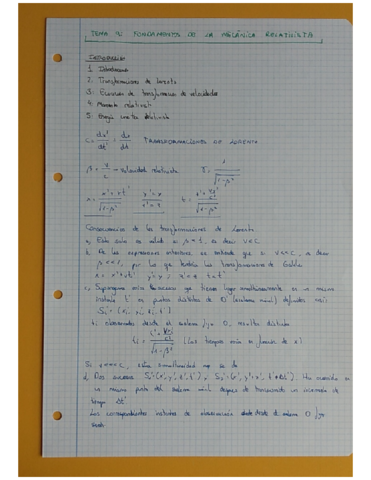 TEMA 4: FUNDAMENTOS DE LA MECÁNICA RELATIVISTA
1. Introducción
2. Transformaciones de Lorentz
3. Ecuaciones de transformación de velocidades
4. Momento relativista
5. Energía cinética relativista
c = dx'/dt' = dx/dt TRANSFORMACIONES DE LORENTZ
β = v/c → velocidad relativista γ = 1/√(1-β²)
x = x'+vt'/√(1-β²) y'=y z'=z t = t'+ vx'/c²/√(1-β²)
Consecuencias de las transformaciones de Lorentz
a) Esto sólo es válido si β<1, es decir v<c
b) De las expresiones anteriores se entiende que si v<<<c, es decir
β<<<1, por lo que tendría las transformaciones de Galileo
x = x'+vt' y'=y z'=z t=t'
c) Supongamos que tienen lugar simultáneamente en un mismo
instante t' en puntos distintos de O' (sistema móvil) definidos
observados desde el sistema fijo O, resulta distinto
(los tiempos son en función de x')
Si v<<<c, esta simultaneidad se da
d) Dos sucesos Ha ocurrido en
un mismo punto del sistema móvil después de transcurrido un intervalo de
tiempo Δt'
Los correspondientes instantes de observación desde el sistema O fijo